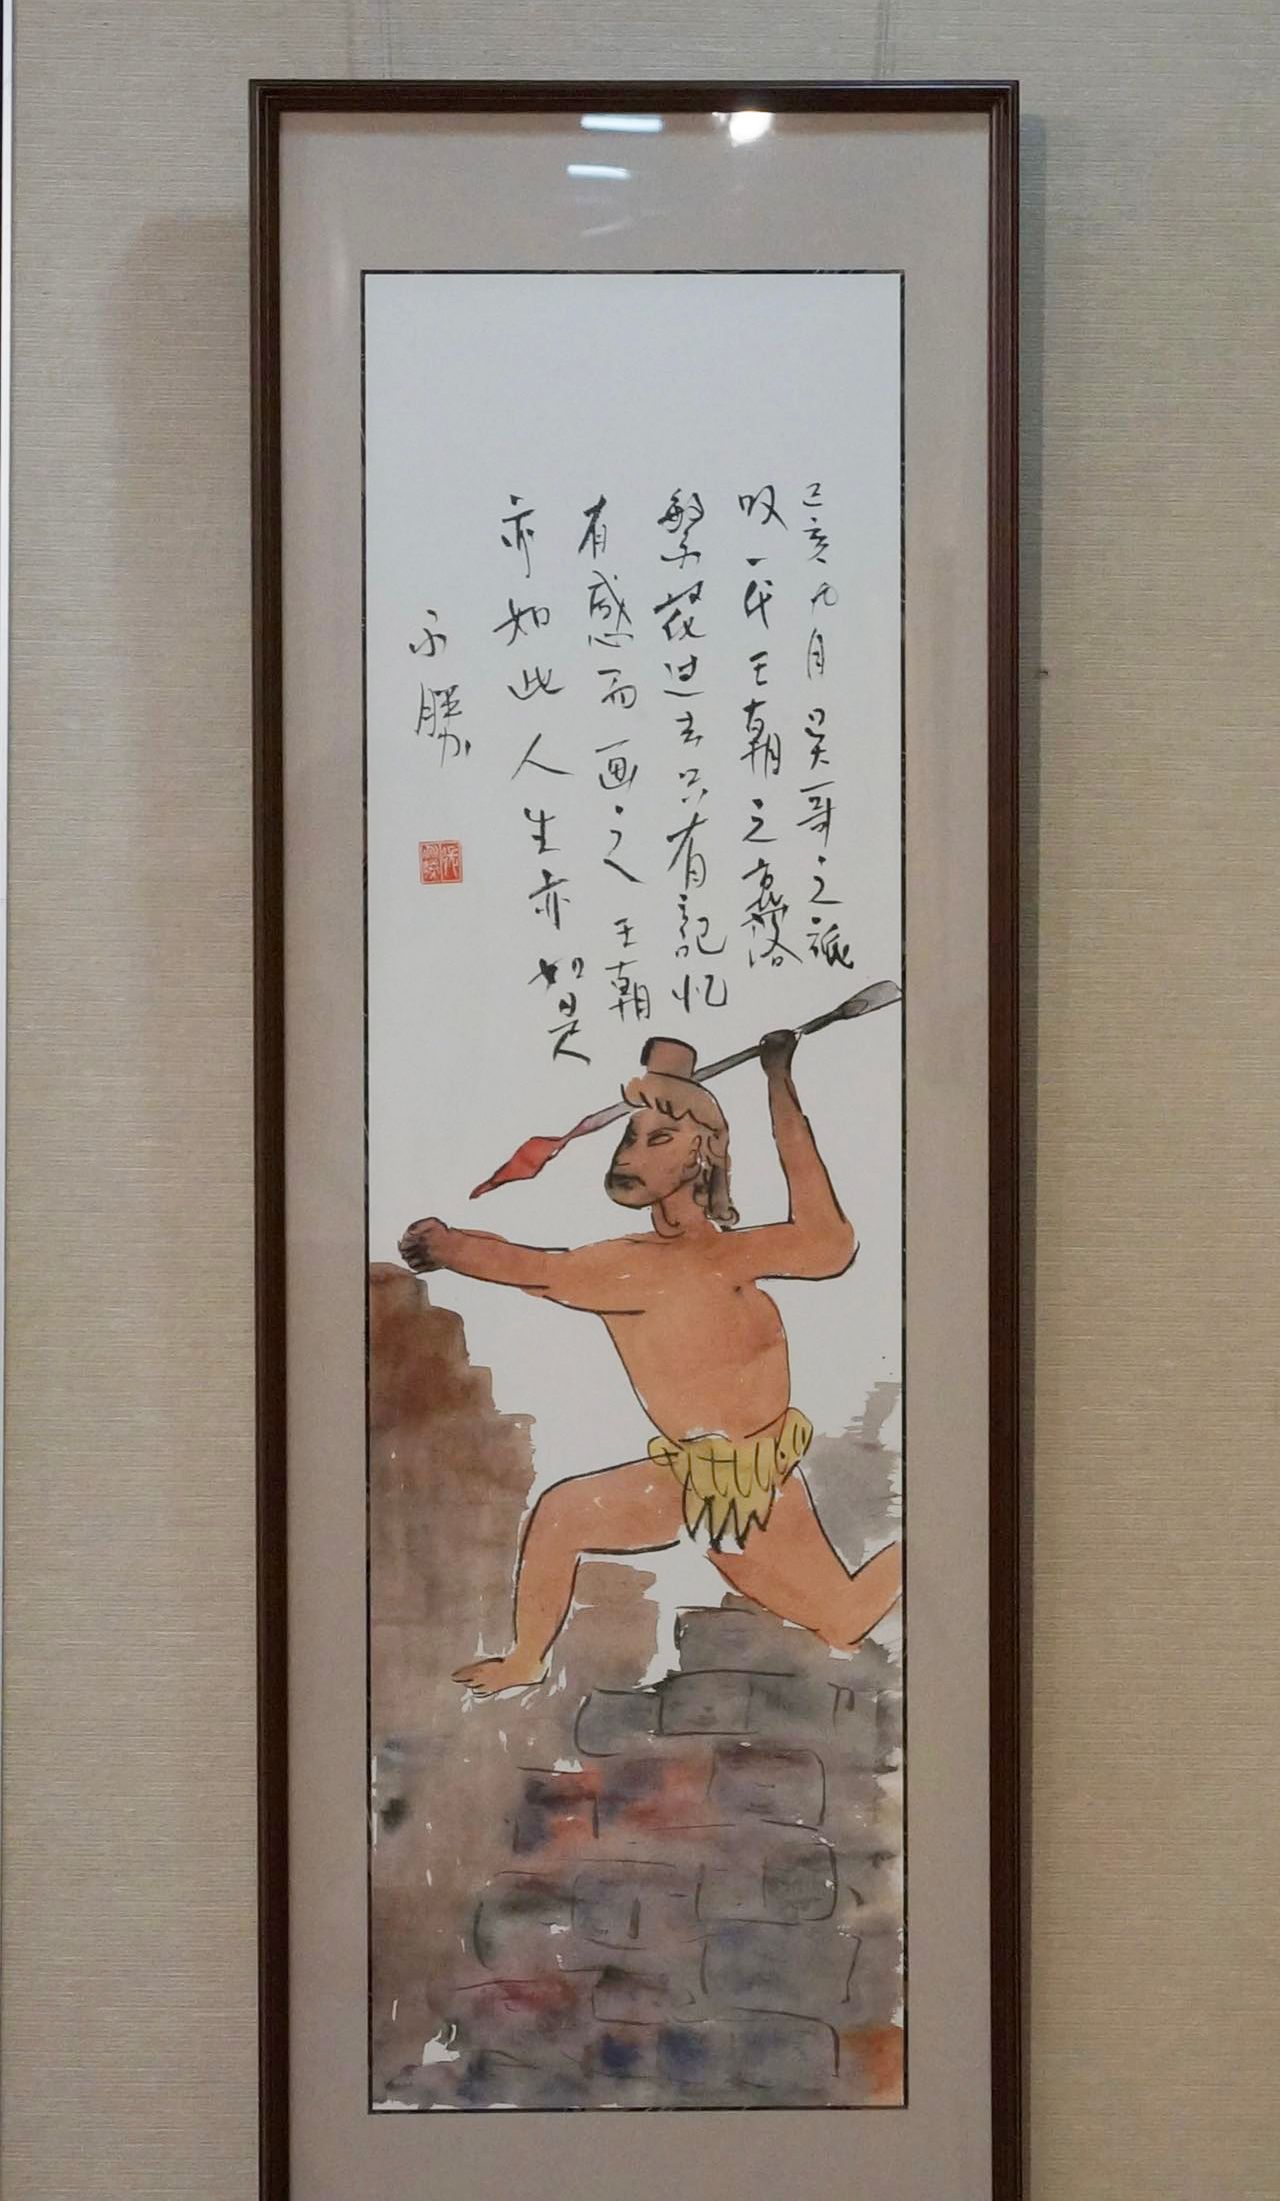 己亥九月吴哥之旅
叹一代王朝之衰落
繁花过去只有記忆
有感而画之王朝
亦如此人生亦如是
永勝